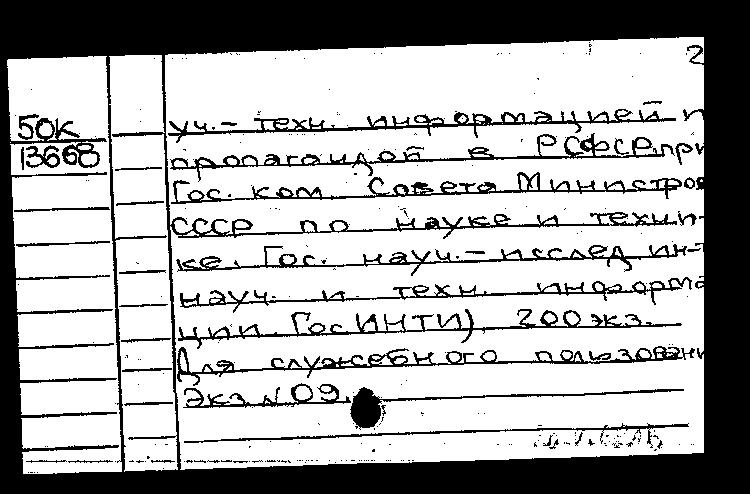 2
50К
13668
уч.- техн. информацией и
пропагандой в РСФСР при
Гос. ком. Совета Министров
СССР по науке и техни-
ке. Гос. науч.- исслед. ин-т
науч. и техн. информа
ции. ГосИНТИ). 200 экз.
Для служебного пользовани
Экз. № 09.